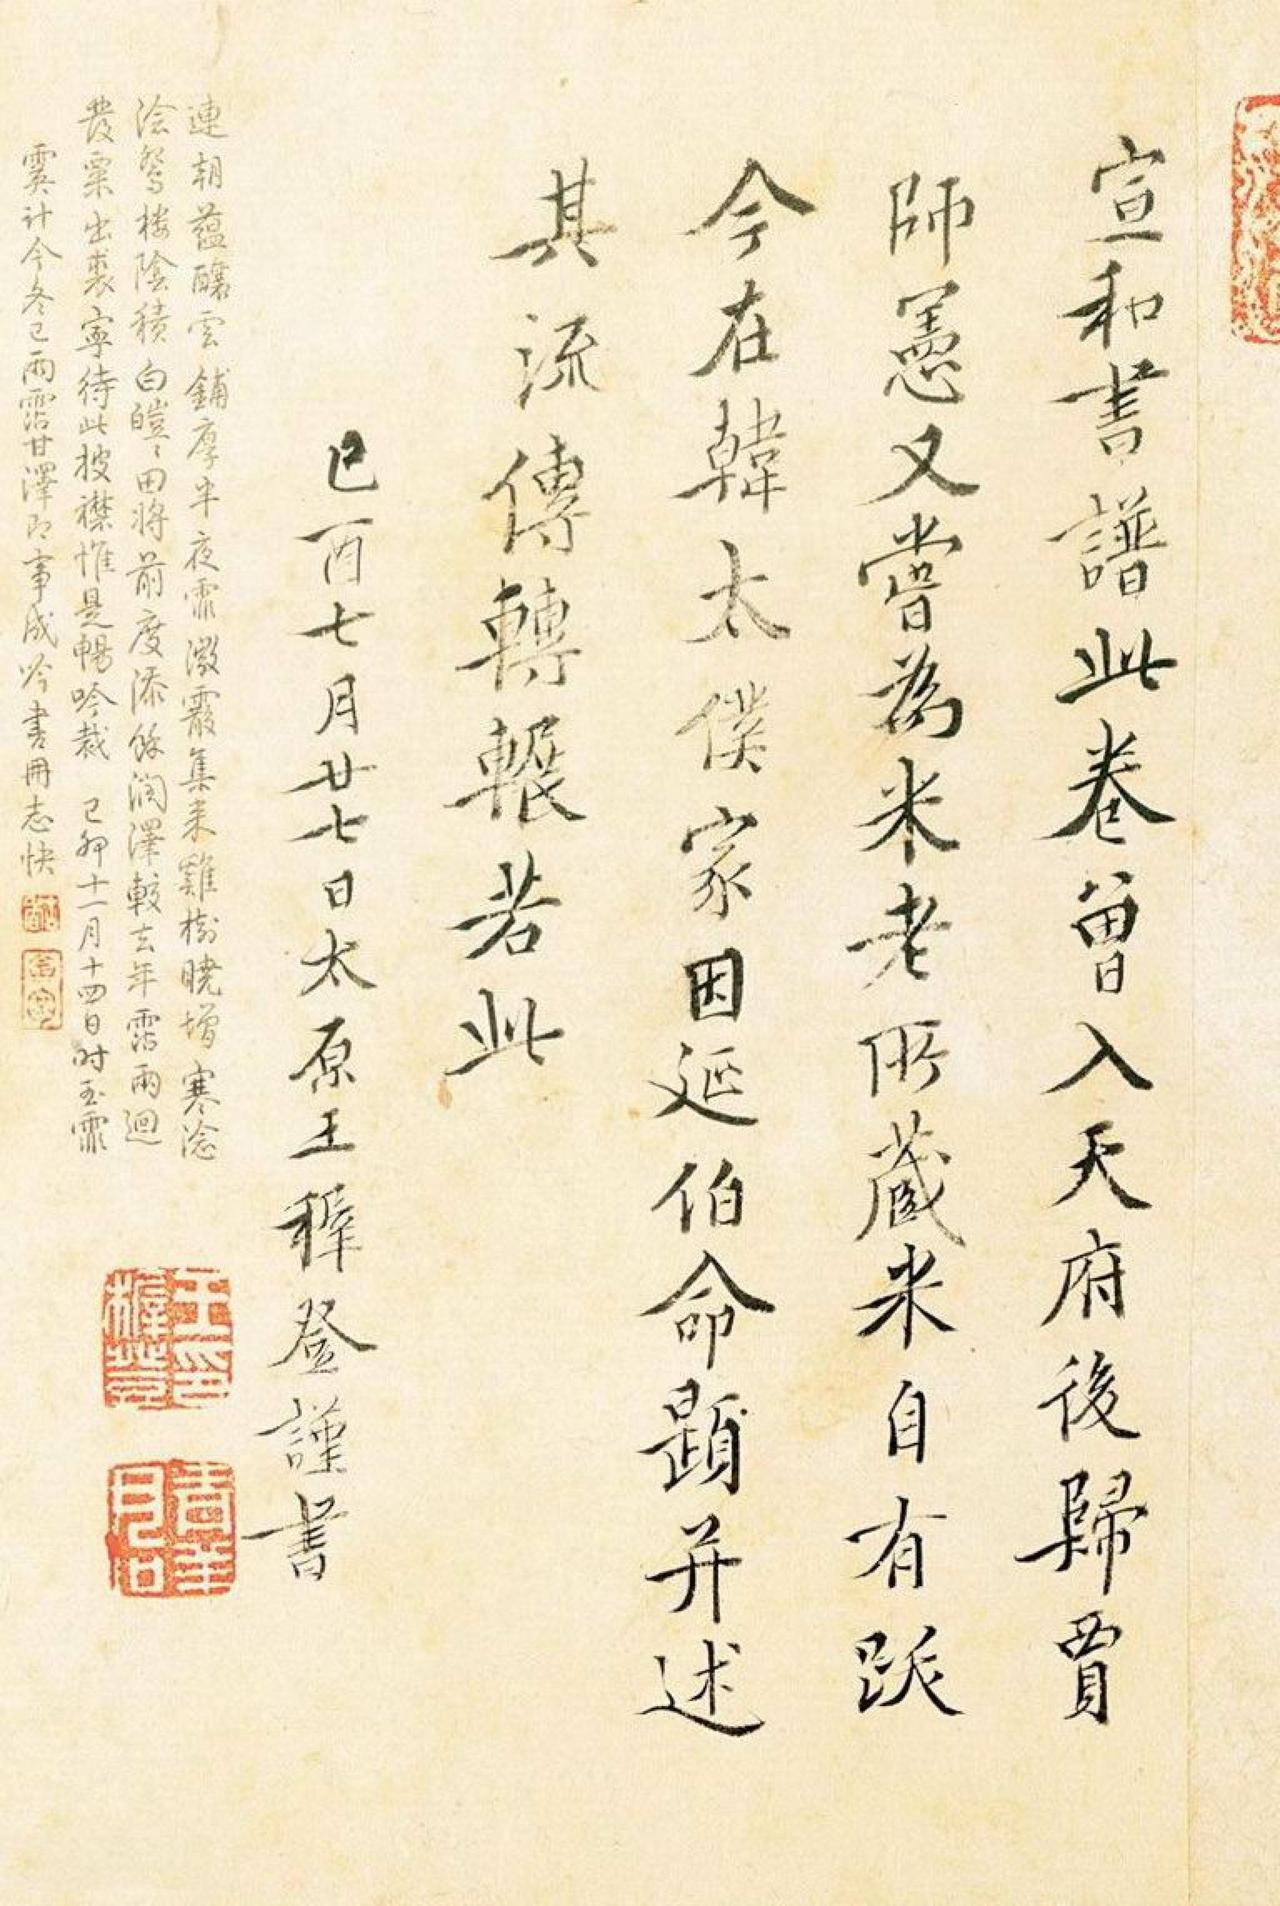 宣和書譜此卷曾入天府後歸賈
師憲又嘗為米老所藏米自有跋
今在韓太僕家因延伯命題并述
其流傳轉輾若此
己酉七月廿七日太原王穉登謹書
王印穉登
青羊君
連朝蘊釀雲鋪厚半夜霏微霰集来雞樹曉增寒淰
淰鴛樓陰積白皚〻田將前度添餘潤澤較去年霑雨迴
發粟出裘寧待此披襟惟是暢吟裁 己卯十一月十四日時玉霏
霙計今冬已兩霑甘澤即事成吟書冊志快